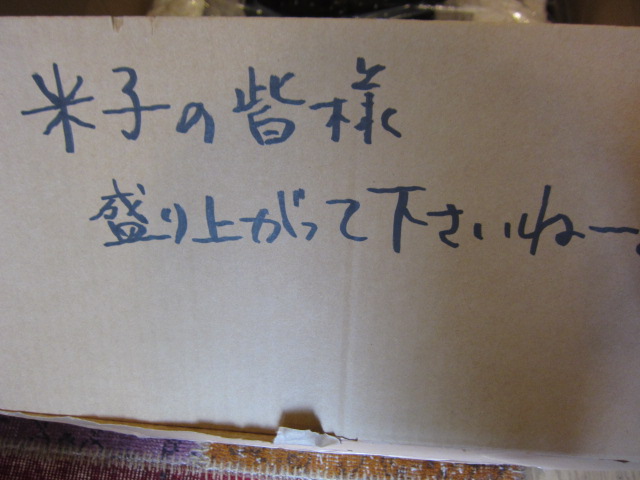 米子の皆様
盛り上がって下さいねー。